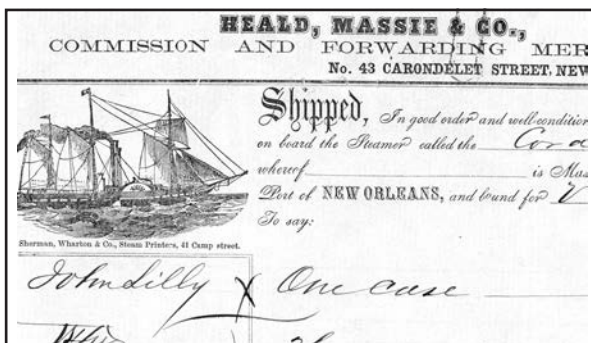 HEALD, MASSIE & CO.,
COMMISSION AND FORWARDING MER
No. 43 CARONDELET STREET, NEW
Shipped, In good order and well-condition
on board the Steamer called the
whereof is Mas
Port of NEW ORLEANS, and bound for V
To say:
Sherman, Wharton & Co., Steam Printers, 41 Camp street.
John Lilly X One case